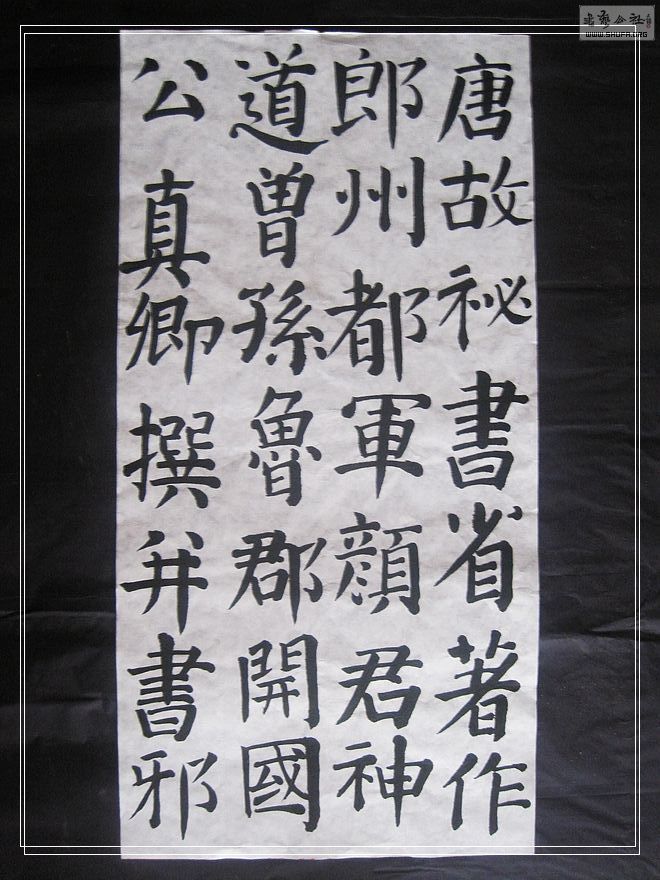 唐故祕書省著作
郎州都軍顔君神
道曾孫魯郡開國
公真卿撰并書邪
书艺公社
WWW.SHUFA.ORG